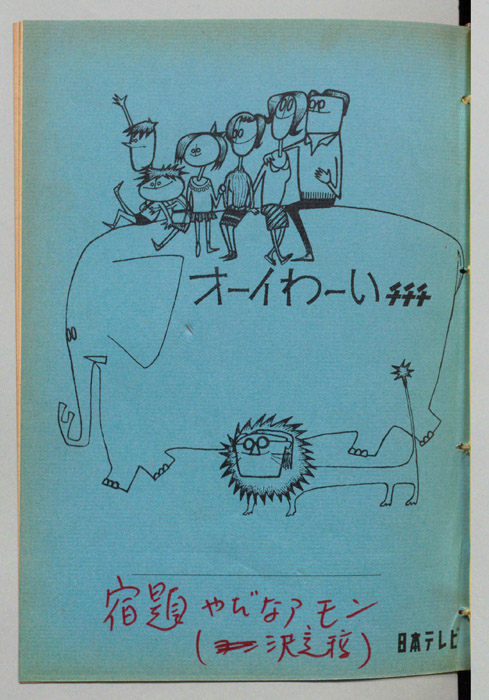 オーイわーいチチチ
宿題 やだなアモン
(決定稿)
日本テレビ